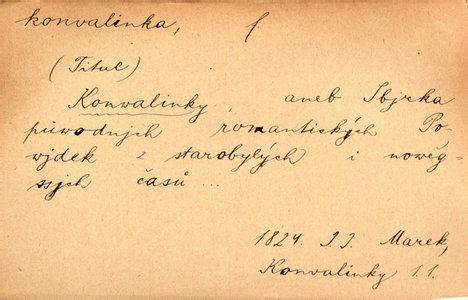 konvalinka, f
(Titul)
Konwalinky aneb Sbjrka
půwodnjch romantických Po-
wjdek z starobylých i nowěg-
ssjch časů ...
1824. J. J. Marek,
Konvalinky 1.1.